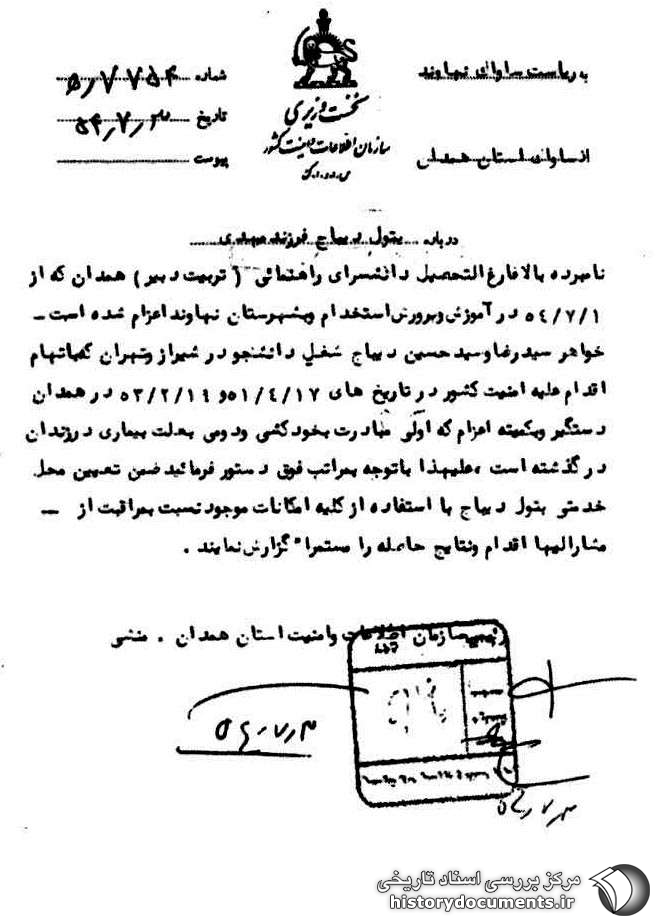 به ریاست ساواک نهاوند
از ساواک استان همدان
نخست وزیری
سازمان اطلاعات و امنیت کشور
س.ا.و.ا.ک
شماره
تاریخ
پیوست
درباره بتول دیباج فرزند مهدی
نامبرده بالا فارغ التحصیل دانشسرای راهنمائی (تربیت دبیر) همدان که از
۵۴/۷/۱ در آموزش وپرورش استخدام وبشهرستان نهاوند اعزام شده است ـ
خواهر سیدرضا وسید حسین دیباج شغل دانشجو در شیراز وتهران که باتهام
اقدام علیه امنیت کشور در تاریخ های ۵۱/۴/۱۷ و ۵۳/۲/۱۱ در همدان
دستگیر وبکمیته اعزام که اولی مبادرت بخودکشی ودومی بعلت بیماری درزندان
درگذشته است ،علیهذا باتوجه بمراتب فوق دستور فرمائید ضمن تعیین محل
خدمتی بتول دیباج با استفاده از کلیه امکانات موجود نسبت بمراقبت از ـ
مشارالیها اقدام ونتایج حاصله را مستمرا" گزارش نمایند .
رئیس سازمان اطلاعات وامنیت استان همدان . منشی
مرکز بررسی اسناد تاریخی
historydocuments.ir